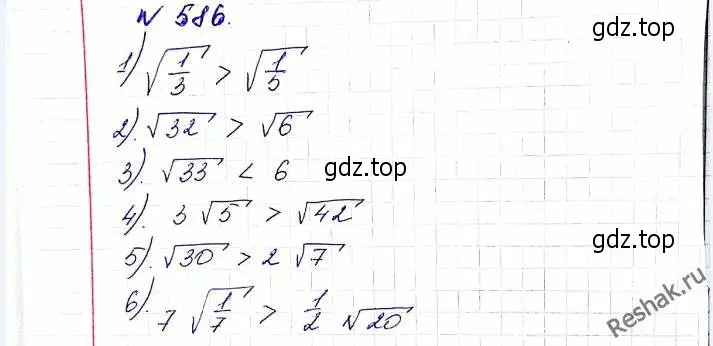 № 586.
1) √(1/3) > √(1/5)
gdz.top
2). √32 > √6
3). √33 < 6
gdz.top
4). 3 √5 > √42
5). √30 > 2 √7
gdz.top
6). 7 √(1/7) > 1/2 √20
Reshak.ru